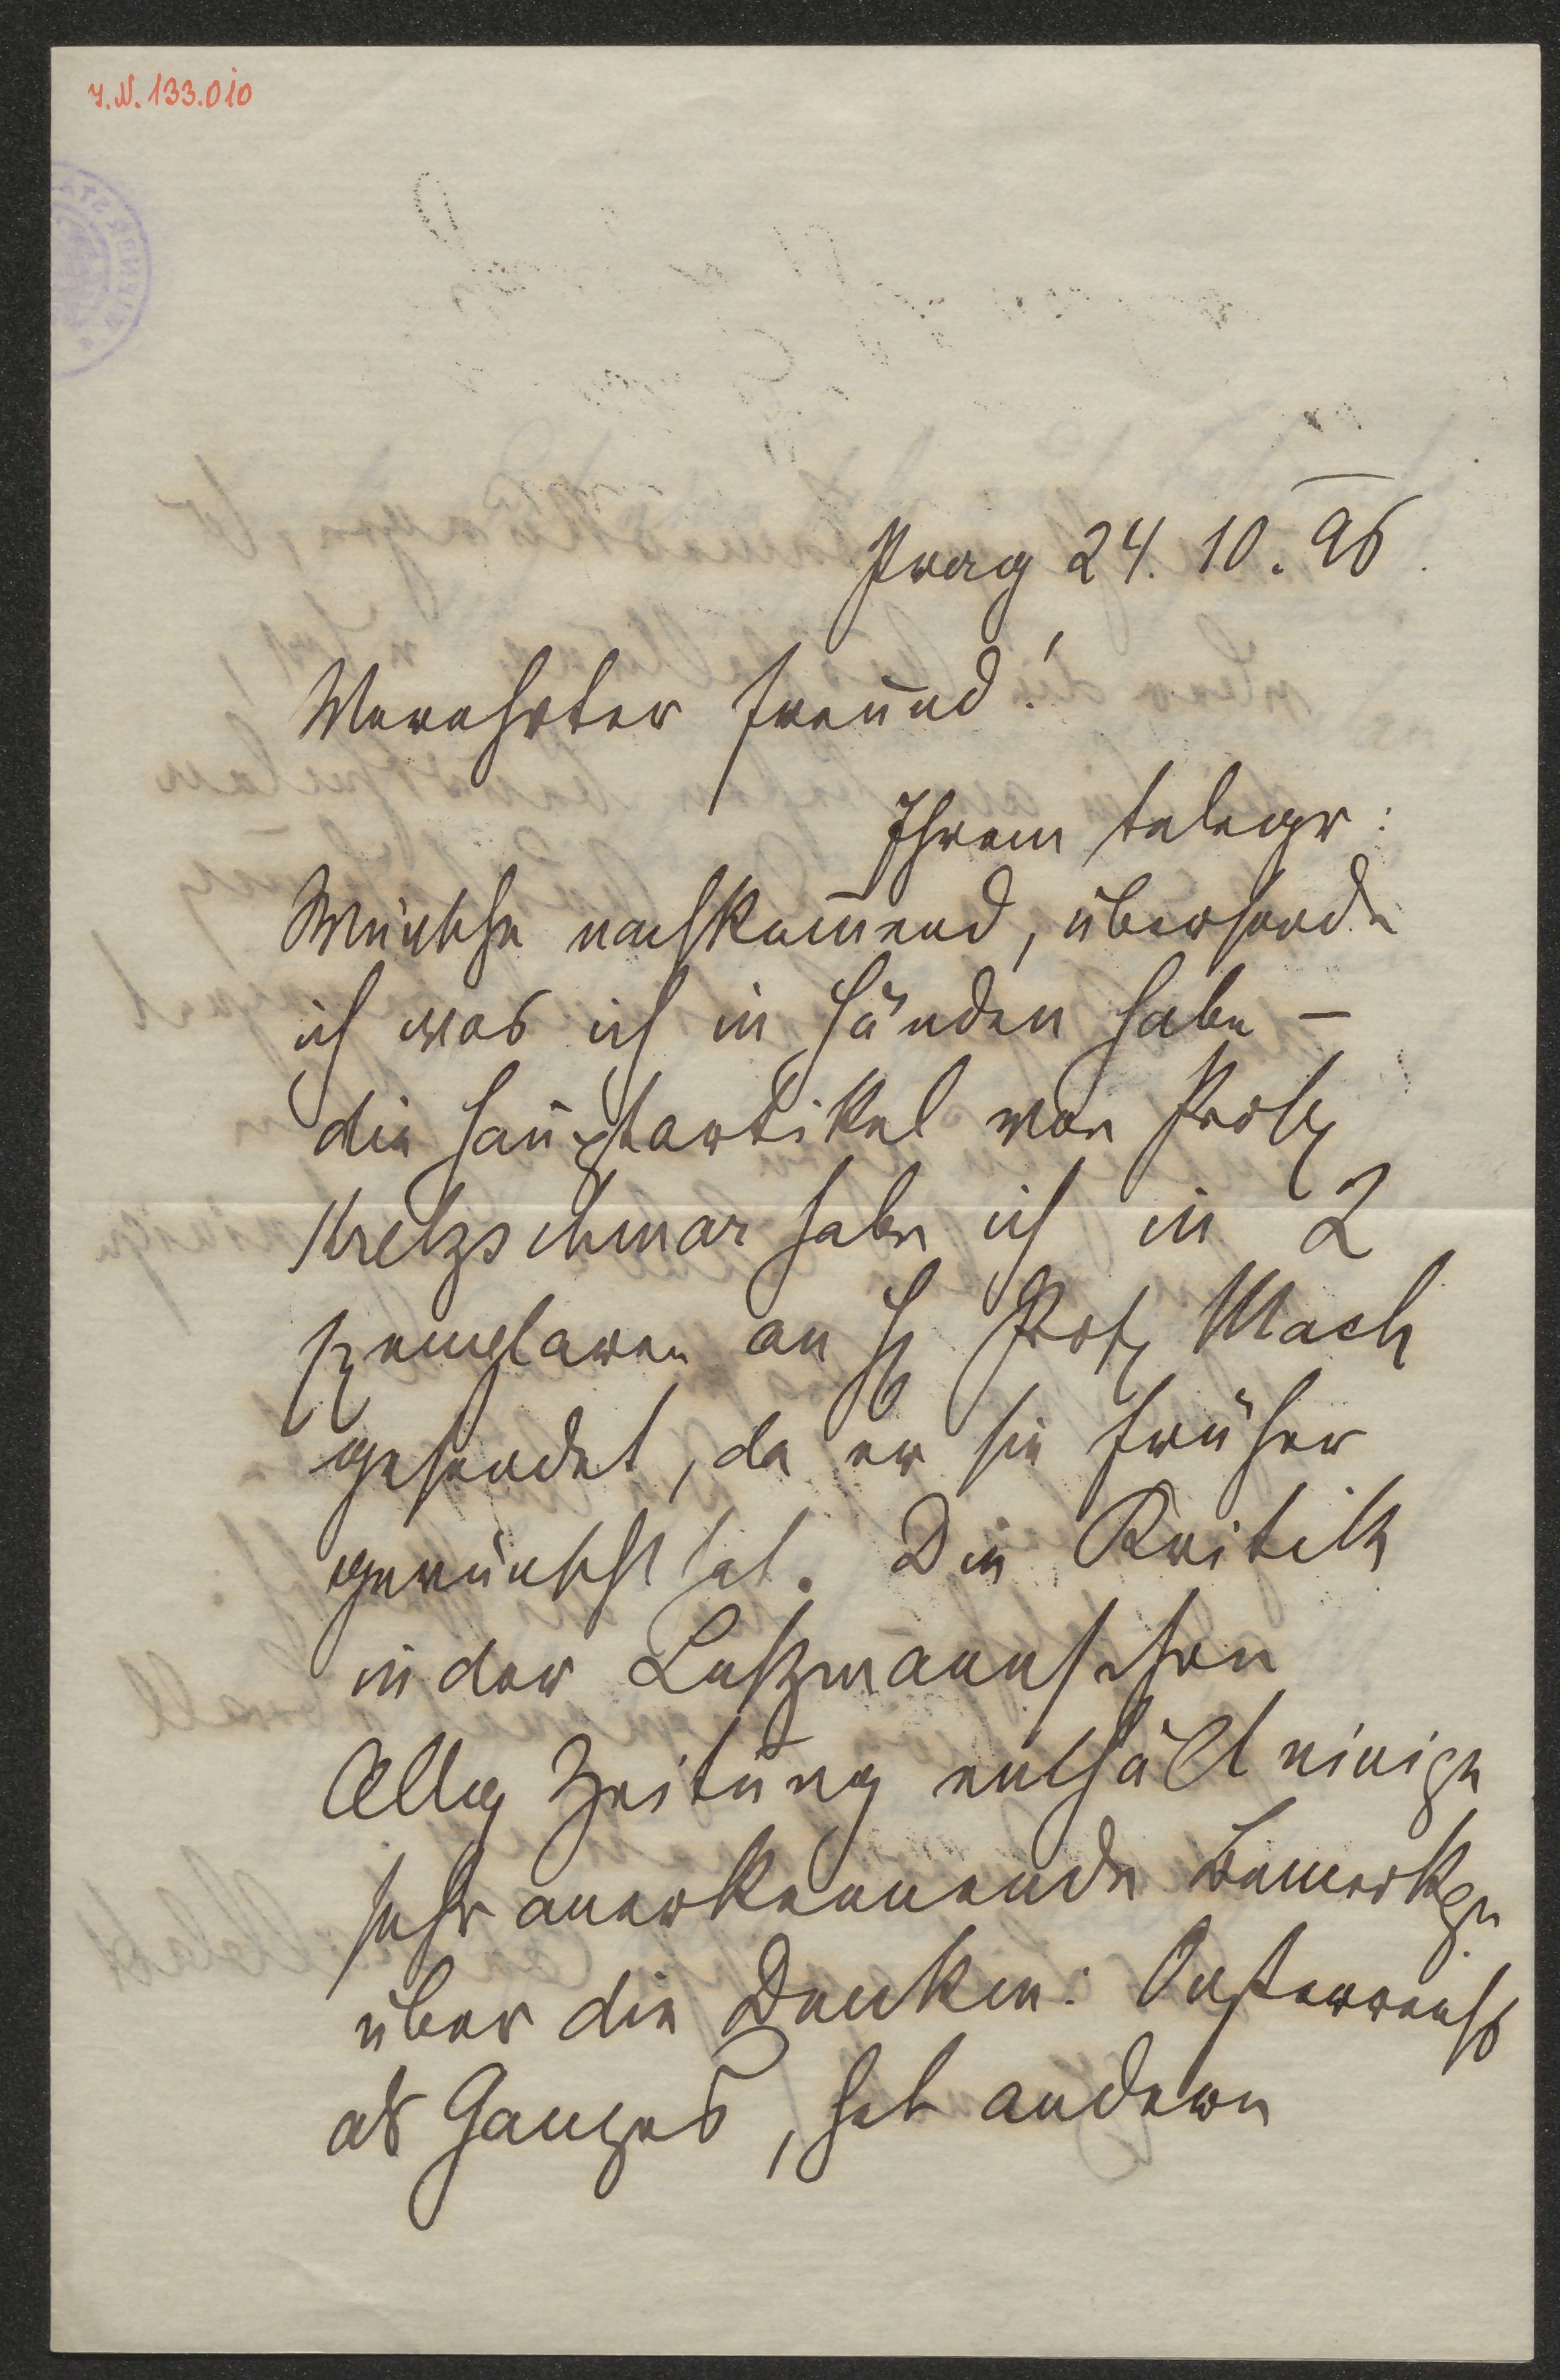 I.N. 133.010
Prag 24. 10. 96.
Verehrter Freund!
Ihrem telegr:
Wunsche nachkommend, übersende
ich was ich in Händen habe –
die Hauptartikel von Prof
Kretzschmar habe ich in 2
Exemplaren an H Prof Mach
gesendet, da er sie früher
gewünscht hat. Die Kritik
in der Leßmannschen
Allg Zeitung enthält einige
sehr anerkennende Bemerkgn
über die Denkm: Oesterreichs
als Ganzes, hat andern